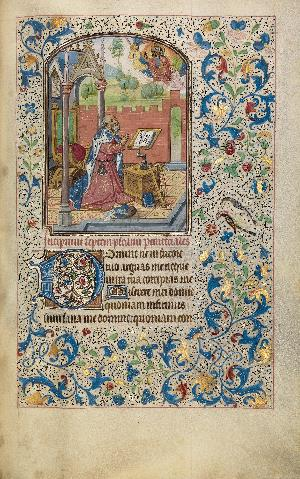 Incipiunt septem psalmi penitenciales
Domine ne in furore
tuo arguas me neque
in ira tua corripias me
Miserere mei domine
quoniam infirmus
sum sana me domine quoniam con